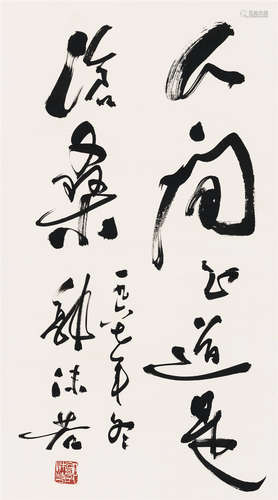 人间正道是
沧桑
一九六七年冬
郭沫若